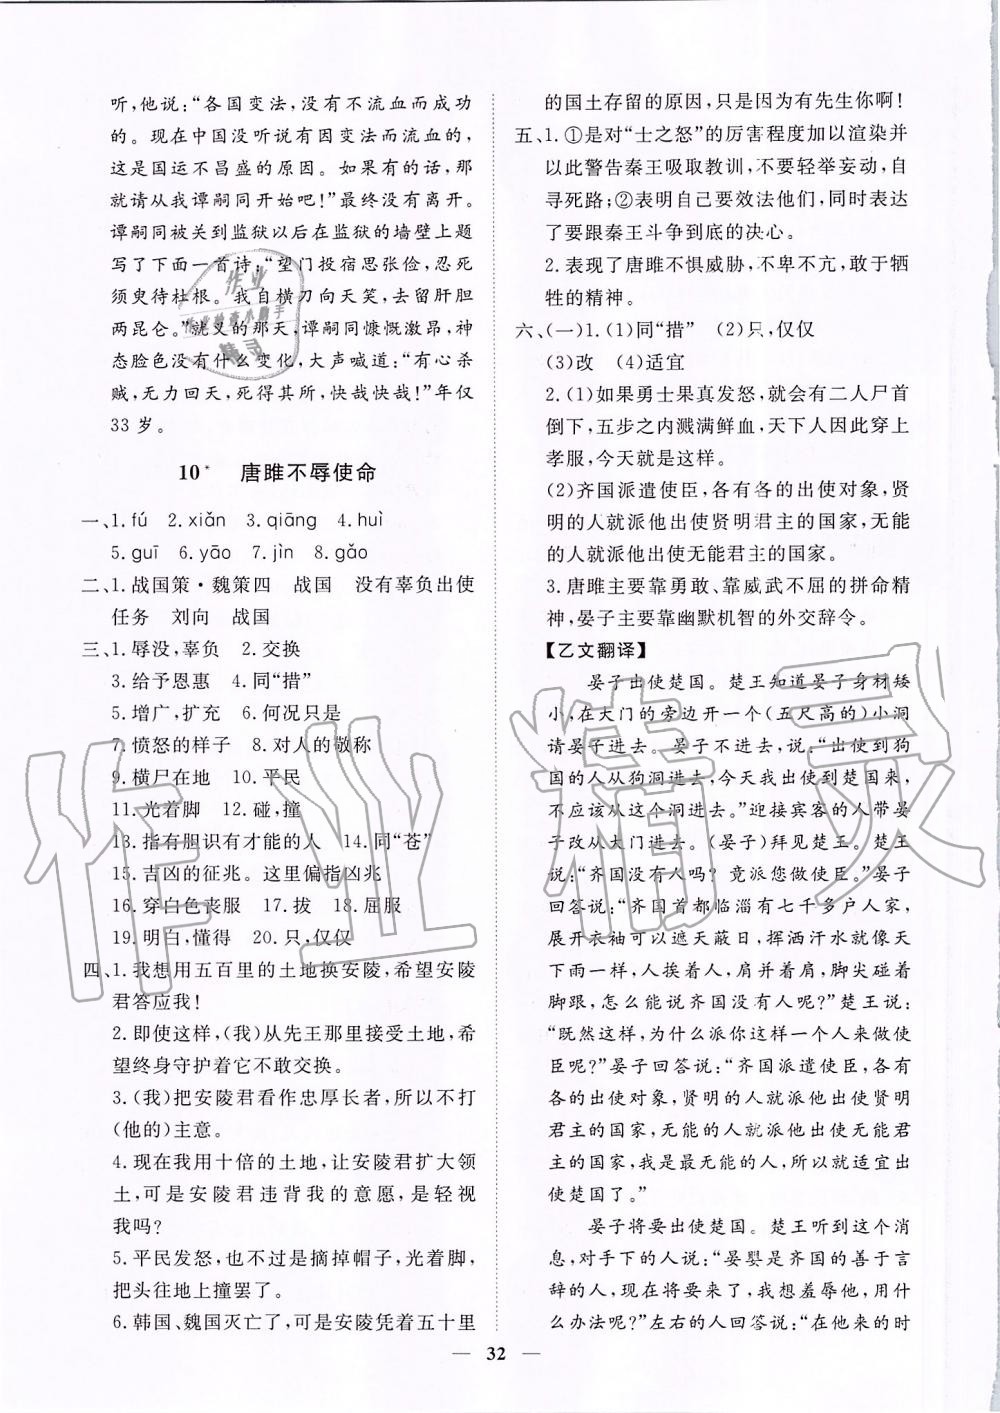 听,他说:“各国变法,没有不流血而成功
的。现在中国没听说有因变法而流血的,
这是国运不昌盛的原因。如果有的话,那
就请从我谭嗣同开始吧!”最终没有离开。
谭嗣同被关到监狱以后在监狱的墙壁上题
写了下面一首诗:“望门投宿思张俭,忍死
须臾待杜根。我自横刀向天笑,去留肝胆
两昆仑。”就义的那天,谭嗣同慷慨激昂,神
态脸色没有什么变化,大声喊道:“有心杀
贼,无力回天,死得其所,快哉快哉!”年仅
33岁。
10* 唐雎不辱使命
一、1.fú 2.xiǎn 3.qiāng 4.huì
5.guī 6.yāo 7.jìn 8.gǎo
二、1.战国策·魏策四 战国 没有辜负出使
任务 刘向 战国
三、1.辱没,辜负 2.交换
3.给予恩惠 4.同“措”
5.增广,扩充 6.何况只是
7.愤怒的样子 8.对人的敬称
9.横尸在地 10.平民
11.光着脚 12.碰,撞
13.指有胆识有才能的人 14.同“苍”
15.吉凶的征兆。这里偏指凶兆
16.穿白色丧服 17.拔 18.屈服
19.明白,懂得 20.只,仅仅
四、1.我想用五百里的土地换安陵,希望安陵
君答应我!
2.即使这样,(我)从先王那里接受土地,希
望终身守护着它不敢交换。
3.(我)把安陵君看作忠厚长者,所以不打
(他的)主意。
4.现在我用十倍的土地,让安陵君扩大领
土,可是安陵君违背我的意愿,是轻视
我吗?
5.平民发怒,也不过是摘掉帽子,光着脚,
把头往地上撞罢了。
6.韩国、魏国灭亡了,可是安陵凭着五十里
的国土存留的原因,只是因为有先生你啊!
五、1.①是对“士之怒”的厉害程度加以渲染并
以此警告秦王吸取教训,不要轻举妄动,自
寻死路;②表明自己要效法他们,同时表达
了要跟秦王斗争到底的决心。
2.表现了唐雎不惧威胁,不卑不亢,敢于牺
牲的精神。
六、(一)1.(1)同“措” (2)只,仅仅
(3)改 (4)适宜
2.(1)如果勇士果真发怒,就会有二人尸首
倒下,五步之内溅满鲜血,天下人因此穿上
孝服,今天就是这样。
(2)齐国派遣使臣,各有各的出使对象,贤
明的人就派他出使贤明君主的国家,无能
的人就派他出使无能君主的国家。
3.唐雎主要靠勇敢、靠威武不屈的拼命精
神,晏子主要靠幽默机智的外交辞令。
【乙文翻译】
晏子出使楚国。楚王知道晏子身材矮
小,在大门的旁边开一个(五尺高的)小洞
请晏子进去。晏子不进去,说:“出使到狗
国的人从狗洞进去,今天我出使到楚国来,
不应该从这个洞进去。”迎接宾客的人带晏
子改从大门进去。(晏子)拜见楚王。楚王
说:“齐国没有人吗?竟派您做使臣。”晏子
回答说:“齐国首都临淄有七千多户人家,
展开衣袖可以遮天蔽日,挥洒汗水就像天
下雨一样,人挨着人,肩并着肩,脚尖碰着
脚跟,怎么能说齐国没有人呢?”楚王说:
“既然这样,为什么派你这样一个人来做使
臣呢?”晏子回答说:“齐国派遣使臣,各有
各的出使对象,贤明的人就派他出使贤明
君主的国家,无能的人就派他出使无能君
主的国家,我是最无能的人,所以就适宜出
使楚国了。”
晏子将要出使楚国。楚王听到这个消
息,对手下的人说:“晏婴是齐国的善于言
辞的人,现在将要来,我想羞辱他,用什
么办法呢?”左右的人回答说:“在他来的时
32
作业精灵